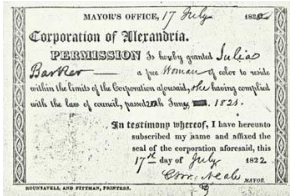 MAYOR'S OFFICE, 17 July 182
Corporation of Alexandria.
PERMISSION Is hereby granted Julia
Barker — a free Woman of color to reside
within the limits of the Corporation aforesaid, she having complied
with the law of council, passed June 1821.
In testimony whereof, I have hereunto
subscribed my name and affixed the
seal of the corporation aforesaid, this
17th day of July 1822.
MAYOR.
ROUNSAVELL AND PITTMAN, PRINTERS.